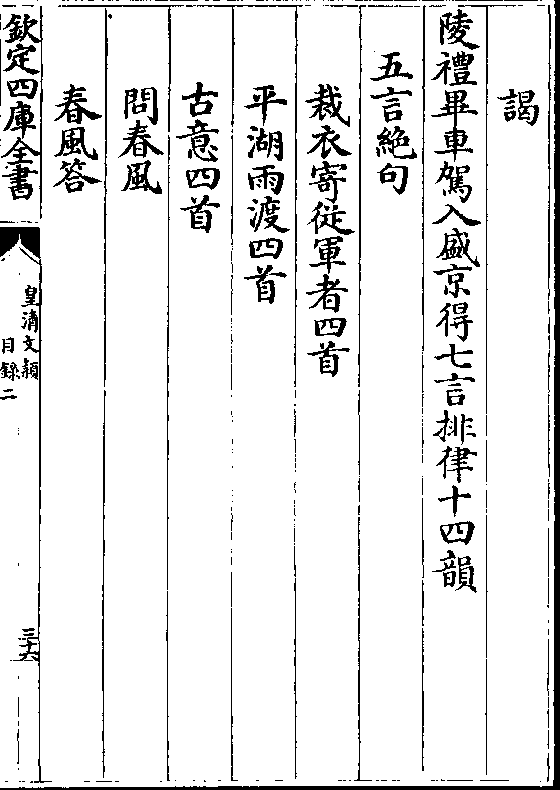 謁
陵禮畢車駕入盛京得七言排律十四韻
五言絶句
裁衣寄從軍者四首
平湖雨渡四首
古意四首
問春風
春風答
欽定四庫全書
皇清文穎
目錄二
三十六